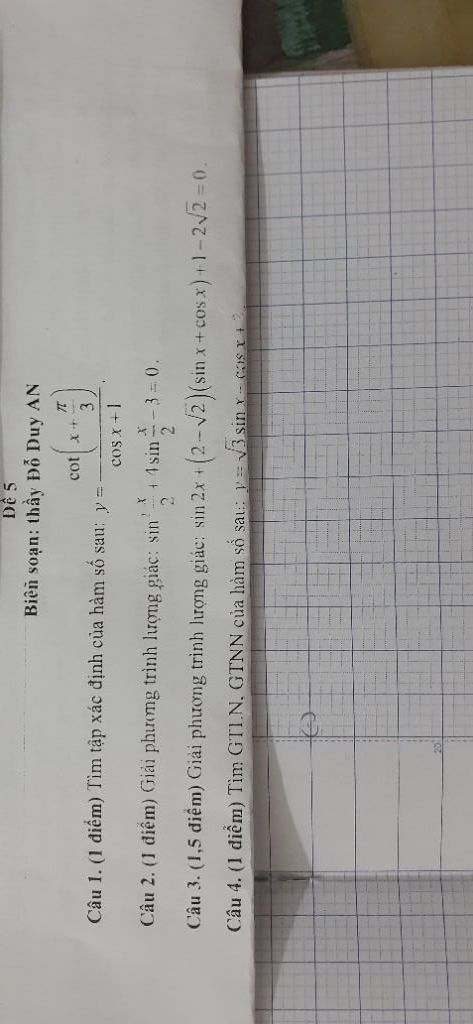 Đề 5
Biên soạn: thầy Đỗ Duy AN
Câu 1. (1 điểm) Tìm tập xác định của hàm số sau: y = cot(x + π/3) / (cos x + 1).
Câu 2. (1 điểm) Giải phương trình lượng giác: sin² x/2 + 4 sin x/2 − 3 = 0.
Câu 3. (1,5 điểm) Giải phương trình lượng giác: sin 2x + (2 − √2)(sin x + cos x) + 1 − 2√2 = 0.
Câu 4. (1 điểm) Tìm GTLN, GTNN của hàm số sau: y = √3 sin x − cos x +
20